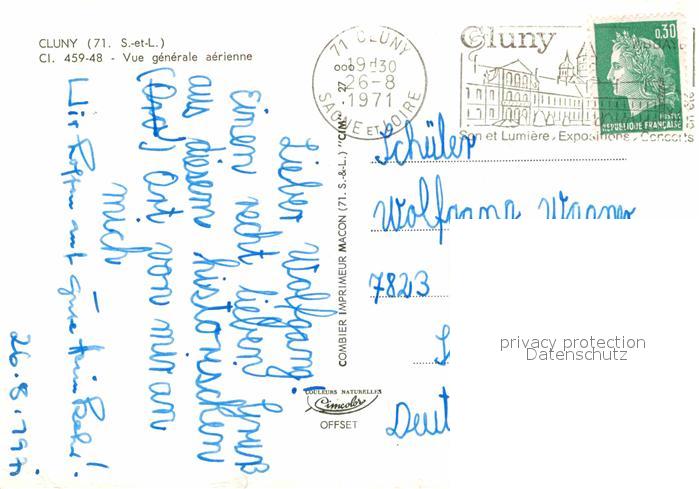 CLUNY (71. S.-et-L.)
CI. 459-48 - Vue générale aérienne
71 CLUNY
19H30
26-8
1971
SAONE ET LOIRE
Cluny
Son et Lumière. Expositions. Concerts
0,30
POSTES
REPUBLIQUE FRANÇAISE
Lieber Wolfgang!
Einen recht lieben Gruß
aus diesem historischen
Ort von mir an
mich
Wir hoffen auf gute Heimkehr!
26.8.1971
COMBIER IMPRIMEUR MACON (71. S.-&-L.) "CIM"
COULEURS NATURELLES
Cimcolor
OFFSET
Schüler
Wolfgang Wagner
7823
Deut
privacy protection
Datenschutz